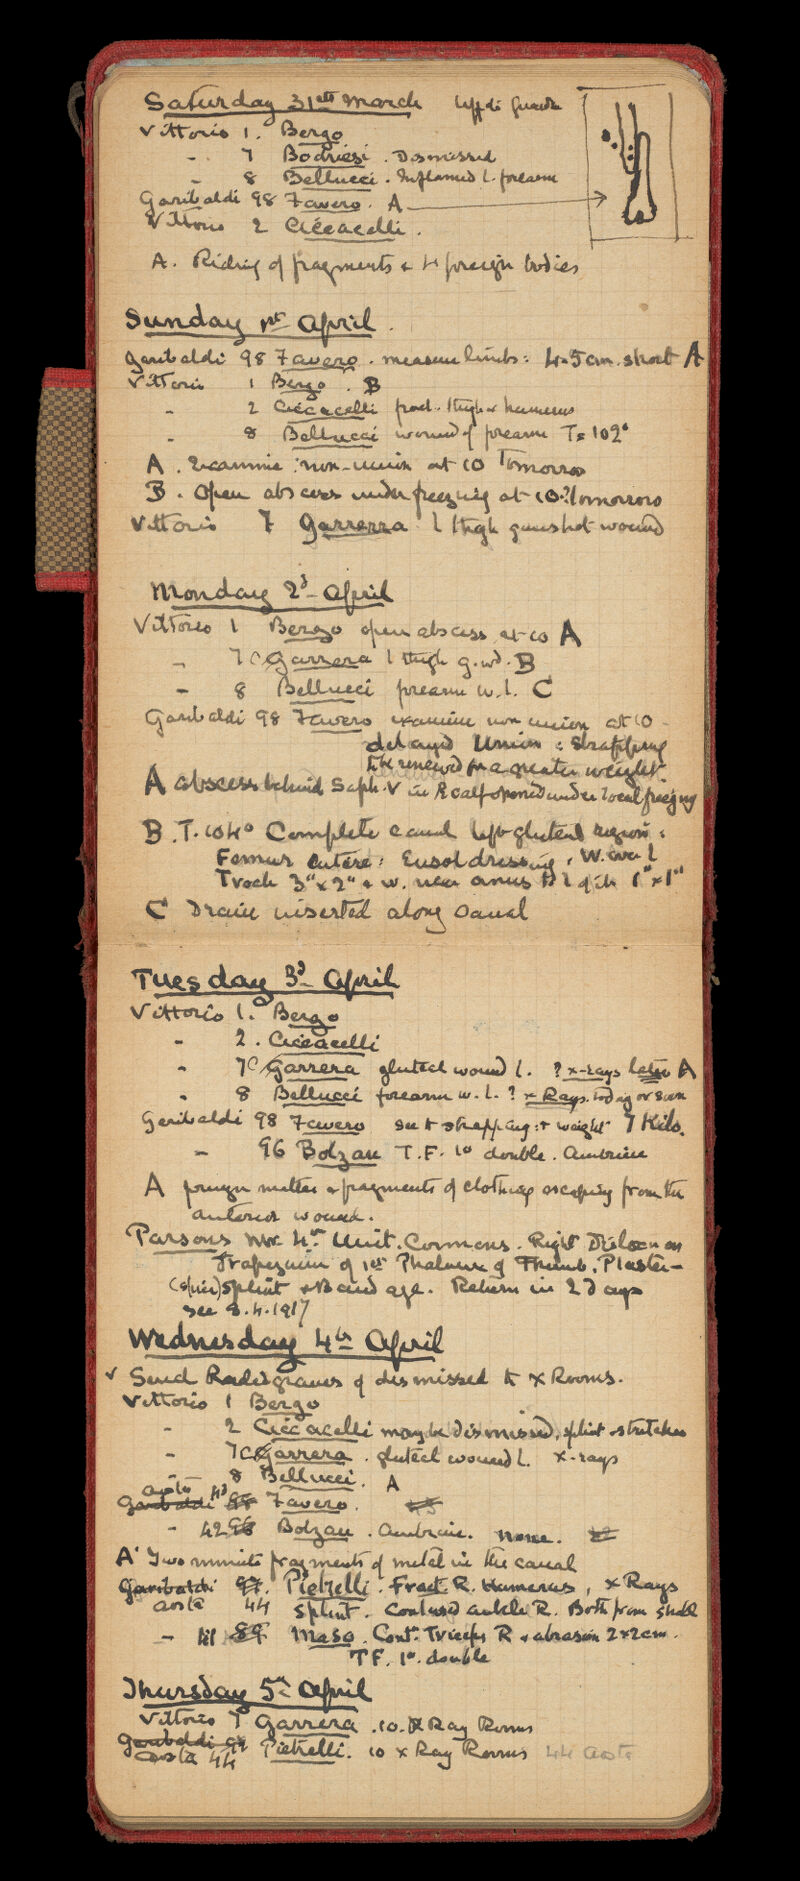 Saturday 31st March
Vittorio 1. Bergo
" 7 Bodriesi. Dismissed
" 8 Bellucci. Inflamed l. forearm
Garibaldi 98 Favero. A
Vittorio 2 Ciccacelli.
A. Riding of fragments & 4 foreign bodies
Sunday 1st April.
Garibaldi 98 Favero. measure limbs: 4.5 cm. short A
Vittorio 1 Bergo. B
" 2 Ciccacelli fract. thigh & humerus
" 8 Bellucci wound of forearm T= 102°
A. Examine: non-union at 10 Tomorro
B. Open abscess under freezing at 10? Tomorrow
Vittorio 7 Garrerra l thigh gunshot wound
Monday 2d April
Vittorio 1 Bergo open abscess at 10 A
" 7 Garrera l thigh g.wd. B
" 8 Bellucci forearm w. l. C
Garibaldi 98 Favero examine non union at 10 -
delayed Union: strapping
to be renewed for a greater weight.
A abscess behind Saph. V in R calf opened under local freezing
B. T. 104° Complete canal left gluteal region:
Femur entere: Eusol dressing. W. over l
Troch 3" x 2" & w. near anus to l of it 1" x 1"
C Drain inserted along canal
Tuesday 3d April
Vittorio 1. Bergo
" 2. Ciccacelli
" 7 Garrera gluteal wound l. ? x-rays later A
" 8 Bellucci forearm w. l. ? x Rays. today or soon
Garibaldi 98 Favero see to strapping: + weight 7 Kilo.
" 96 Bolzau T.F. 1° double. Ambrine
A foreign matter & fragments of clothing escaping from the
anterior wound.
Parsons Mr. 4th Unit. Cormons. Right Dislocn on
Trapezium of 1st Phalanx of Thumb. Plaster-
splint & Bandage. Return in 2 days
see 8.4.1917
Wednesday 4th April
✓ Send Radiograms of dismissed to X Rooms.
Vittorio 1 Bergo
" 2 Ciccacelli may be dismissed, splint & stretcher
" 7 Garrera. gluteal wound l. x-rays
" 8 Bellucci. A
Aosta 43
Garibaldi 98 Favero.
" 42 96 Bolzau. Ambrine. none.
A' Two minute fragments of metal in the canal
Garibaldi 97. Pietrelli. Fract R. Humerus, x Rays
Aosta 44 splint. Contused ankle R. Both from shell
" 41 89 Maso. Contn Triceps R & abrasion 2x2cm.
T F. 1° double
Thursday 5th April
Vittorio 7 Garrera. 10. X Ray Rooms
Garibaldi 97 Pietrelli. 10 x Ray Rooms 44 Aosta
Aosta 44